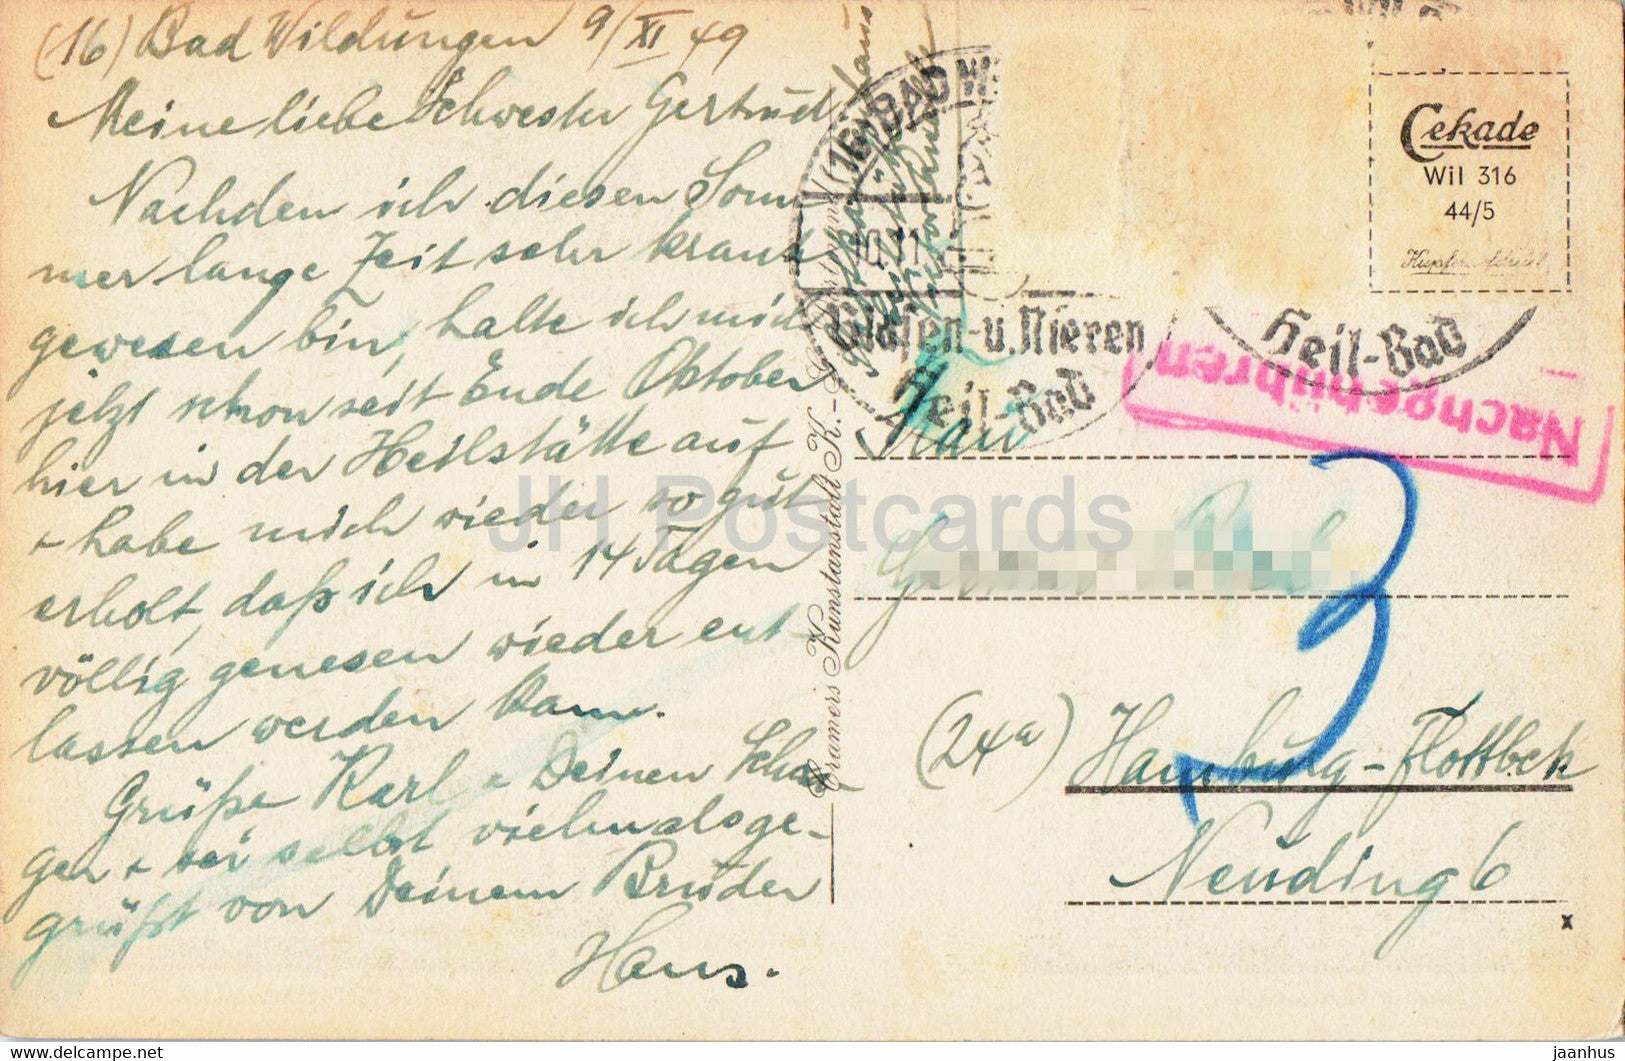 (16) Bad Wildungen 9/XI 49
Meine liebe Schwester Gertrud
Nachdem ich diesen Som
mer lange Zeit sehr krank
gewesen bin, halte ich mich
jetzt schon seit Ende Oktober
hier in der Heilstätte auf
+ habe mich wieder so gut
erholt, daß ich in 14 Tagen
völlig genesen wieder ent-
lassen werden kann.
Grüße Karl + Deinen
ger + sei selbst vielmals ge-
grüßt von Deinem Bruder
Hans.
Cramers Kunstanstalt K.-G., Dortmund
(16) BAD
10.11
Blasen-u.Nieren
Heil-Bad
Heil-Bad
Cekade
Wil 316
44/5
Kupfertiefdruck
Nachgebühren
Frau
3
(24a) Hamburg-Flottbek
Neuding 6
x
JH Postcards
jaanhus.com
jaanhus